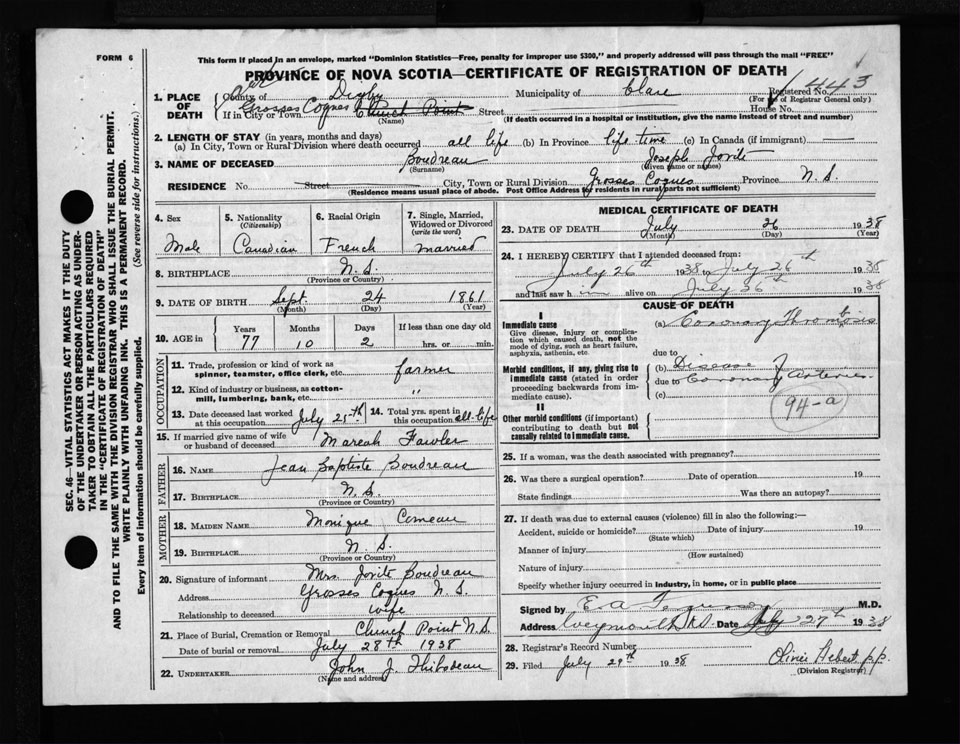 FORM 6
This form if placed in an envelope, marked "Dominion Statistics—Free, penalty for improper use $300," and properly addressed will pass through the mail "FREE"
PROVINCE OF NOVA SCOTIA—CERTIFICATE OF REGISTRATION OF DEATH
1. PLACE OF DEATH
County of Digby Municipality of Clare Registered No. 443
(For use of Registrar General only)
If in City or Town Grosses Coques Church Point Street House No.
(Name) (If death occurred in a hospital or institution, give the name instead of street and number)
2. LENGTH OF STAY (in years, months and days)
(a) In City, Town or Rural Division where death occurred all life (b) In Province life time (c) In Canada (if immigrant)
3. NAME OF DECEASED Boudreau Joseph Jovite
(Surname) (Given name or names)
RESIDENCE No. Street City, Town or Rural Division Grosses Coques Province N.S.
(Residence means usual place of abode. Post Office Address for residents in rural parts not sufficient)
4. Sex Male
5. Nationality (Citizenship) Canadian
6. Racial Origin French
7. Single, Married, Widowed or Divorced (write the word) married
8. BIRTHPLACE N.S.
(Province or Country)
9. DATE OF BIRTH Sept. 24 1861
(Month) (Day) (Year)
10. AGE in Years 77 Months 10 Days 2 If less than one day old hrs. or min.
OCCUPATION
11. Trade, profession or kind of work as spinner, teamster, office clerk, etc. farmer
12. Kind of industry or business, as cotton-mill, lumbering, bank, etc. "
13. Date deceased last worked at this occupation July 25th 14. Total yrs. spent in this occupation all-life
15. If married give name of wife or husband of deceased Mareah Fawler
FATHER
16. NAME Jean Baptiste Boudreau
17. BIRTHPLACE N.S.
(Province or Country)
MOTHER
18. MAIDEN NAME Monique Comeau
19. BIRTHPLACE N.S.
(Province or Country)
20. Signature of informant Mrs. Jovite Boudreau
Address Grosses Coques N.S.
Relationship to deceased wife
21. Place of Burial, Cremation or Removal Church Point N.S.
Date of burial or removal July 28th 1938
22. UNDERTAKER John J. Thibodeau
(Name and address)
MEDICAL CERTIFICATE OF DEATH
23. DATE OF DEATH July 26 1938
(Month) (Day)
24. I HEREBY CERTIFY that I attended deceased from:
July 26th 1938 to July 26th 1938
and last saw him alive on July 26th 1938
CAUSE OF DEATH
I
Immediate cause
Give disease, injury or complication which caused death, not the mode of dying, such as heart failure, asphyxia, asthenia, etc.
(a) Coronary Thrombosis
due to
Morbid conditions, if any, giving rise to immediate cause (stated in order proceeding backwards from immediate cause).
(b) Disease of
due to Coronary Arteries
(c)
94-a
II
Other morbid conditions (if important) contributing to death but not causally related to immediate cause.
25. If a woman, was the death associated with pregnancy?
26. Was there a surgical operation? Date of operation 19
State findings Was there an autopsy?
27. If death was due to external causes (violence) fill in also the following:—
Accident, suicide or homicide? Date of injury 19
(State which)
Manner of injury
(How sustained)
Nature of injury
Specify whether injury occurred in industry, in home, or in public place
Signed by E. A. M.D.
Address Weymouth N.S. Date July 27th 1938
28. Registrar's Record Number
29. Filed July 29th 1938 p.p.
(Division Registrar)
SEC. 46—VITAL STATISTICS ACT MAKES IT THE DUTY
OF THE UNDERTAKER OR PERSON ACTING AS UNDER-
TAKER TO OBTAIN ALL THE PARTICULARS REQUIRED
IN THE "CERTIFICATE OF REGISTRATION OF DEATH"
AND TO FILE THE SAME WITH THE DIVISION REGISTRAR WHO SHALL ISSUE THE BURIAL PERMIT.
WRITE PLAINLY WITH UNFADING INK. THIS IS A PERMANENT RECORD.
Every item of information should be carefully supplied. (See reverse side for instructions.)